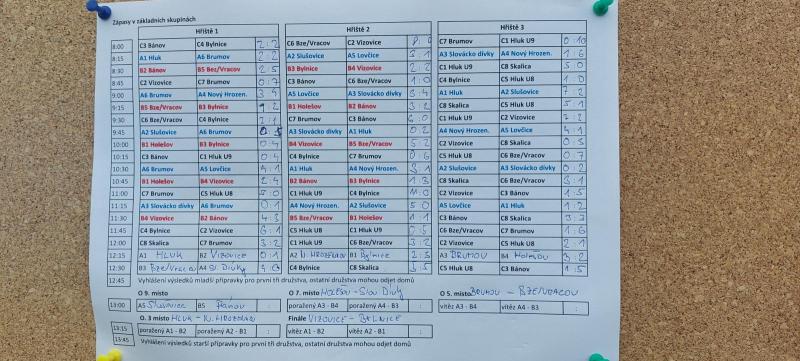 Zápasy v základních skupinách
Hřiště 1 Hřiště 2 Hřiště 3
8:00 C3 Bánov C4 Bylnice 2:2 C6 Bze/Vracov C2 Vizovice C7 Brumov C1 Hluk U9 0:10
8:15 A1 Hluk A6 Brumov 2:2 A2 Slušovice A5 Lovčice 5:1 A3 Slovácko dívky A4 Nový Hrozen. 1:6
8:30 B2 Bánov B5 Bez/Vracov 2:5 B3 Bylnice B4 Vizovice 2:2 C1 Hluk U9 C8 Skalica 5:0
8:45 C2 Vizovice C7 Brumov 0:7 C3 Bánov C6 Bze/Vracov 1:0 C4 Bylnice C5 Hluk U8 1:0
9:00 A6 Brumov A4 Nový Hrozen. 3:4 A5 Lovčice A3 Slovácko dívky 3:4 A1 Hluk A2 Slušovice 7:2
9:15 B5 Bze/Vracov B3 Bylnice 2 B1 Holešov B2 Bánov 3:2 C8 Skalica C5 Hluk U8 5:1
9:30 C6 Bze/Vracov C4 Bylnice 2:1 C7 Brumov C3 Bánov 6:0 C1 Hluk U9 C2 Vizovice 7:2
9:45 A2 Slušovice A6 Brumov A3 Slovácko dívky A1 Hluk 0:2 A4 Nový Hrozen. A5 Lovčice 4:1
10:00 B1 Holešov B3 Bylnice 0:4 B4 Vizovice B5 Bze/Vracov 5:2 C2 Vizovice C8 Skalica 0:5
10:15 C3 Bánov C1 Hluk U9 0:4 C4 Bylnice C7 Brumov 0:6 C5 Hluk U8 C6 Bze/Vracov 0:7
10:30 A6 Brumov A5 Lovčice 4:1 A1 Hluk A4 Nový Hrozen. 3:1 A2 Slušovice A3 Slovácko dívky 0:2
10:45 B1 Holešov B4 Vizovice 2:4 B2 Bánov B3 Bylnice 1:3 C8 Skalica C6 Bze/Vracov 3:1
11:00 C7 Brumov C5 Hluk U8 5:0 C1 Hluk U9 C4 Bylnice C2 Vizovice C3 Bánov 1:5
11:15 A3 Slovácko dívky A6 Brumov 0:1 A4 Nový Hrozen. A2 Slušovice 5:0 A5 Lovčice A1 Hluk 1:2
11:30 B4 Vizovice B2 Bánov 4:3 B5 Bze/Vracov B1 Holešov 1:1 C3 Bánov C8 Skalica
11:45 C4 Bylnice C2 Vizovice 6:1 C5 Hluk U8 C1 Hluk U9 C6 Bze/Vracov C7 Brumov 1:6
12:00 C8 Skalica C7 Brumov 3:2 C1 Hluk U9 C6 Bze/Vracov 3:2 C2 Vizovice C5 Hluk U8 2:1
12:15 A1 HLUK B2 VIZOVICE 0:1 A2 N. HROZENKOV B1 BYLNICE 2:3 A3 BRUMOV B4 HOLEŠOV 3:2
12:30 B3 Bze/Vracov A4 Sl. Dívky C4 Bylnice C8 Skalica 3:5 C5 Hluk U8 C3 Bánov 1:5
12:45 Vyhlášení výsledků mladší přípravky pro první tři družstva, ostatní družstva mohou odjet domů
O 9. místo O 7. místo HOLEŠOV - Slov Dívky O 5. místo BRUMOV - BZENEC/VRACOV
13:00 A5 Slušovice B5 Bánov : poražený A3 - B4 poražený A4 - B3 : vítěz A3 - B4 vítěz A4 - B3 :
O. 3 místo HLUK - N. HROZENKOV Finále VIZOVICE - BYLNICE
13:15 poražený A1 - B2 poražený A2 - B1 : vítěz A1 - B2 vítěz A2 - B1 :
13:45 Vyhlášení výsledků starší přípravky pro první tři družstva, ostatní družstva mohou odjet domů